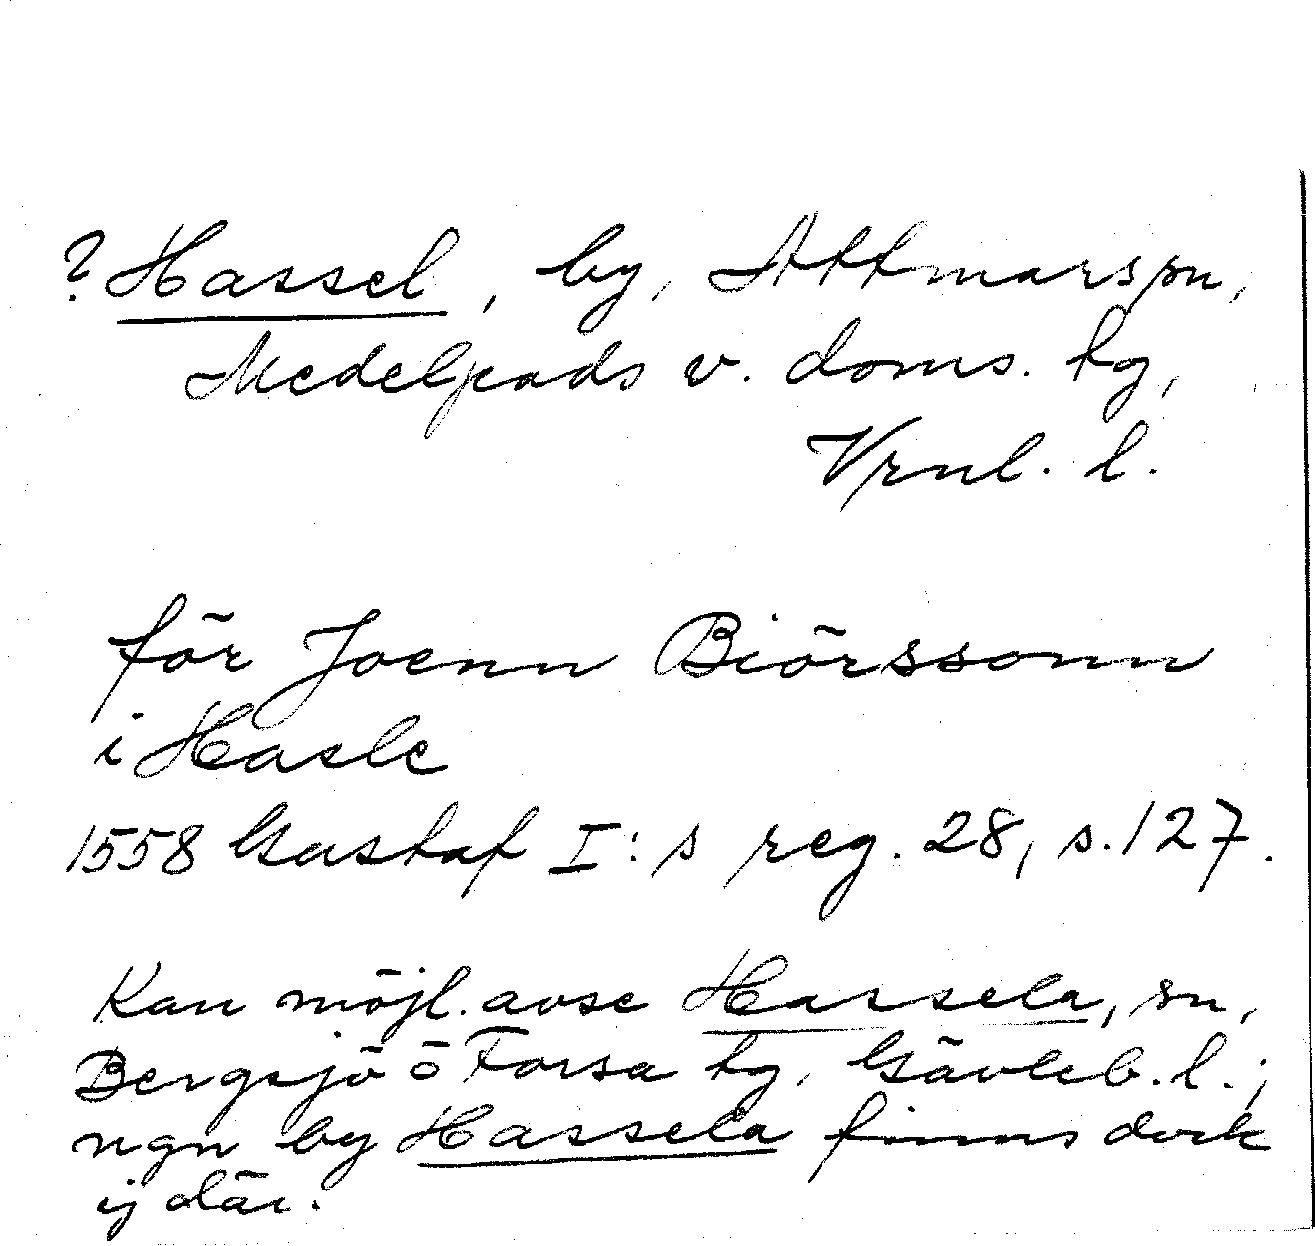 ? Hassel, by, Attmars sn,
Medelpads v. doms. tg,
Vrnl. l.
för Joenn Biörssonn
i Hasle
1558 Gustaf I:s reg. 28, s. 127.
Kan möjl. avse Hassela, sn,
Bergsjö o Forsa tg, Gävleb. l.;
ngn by Hassela finns dock
ej där.